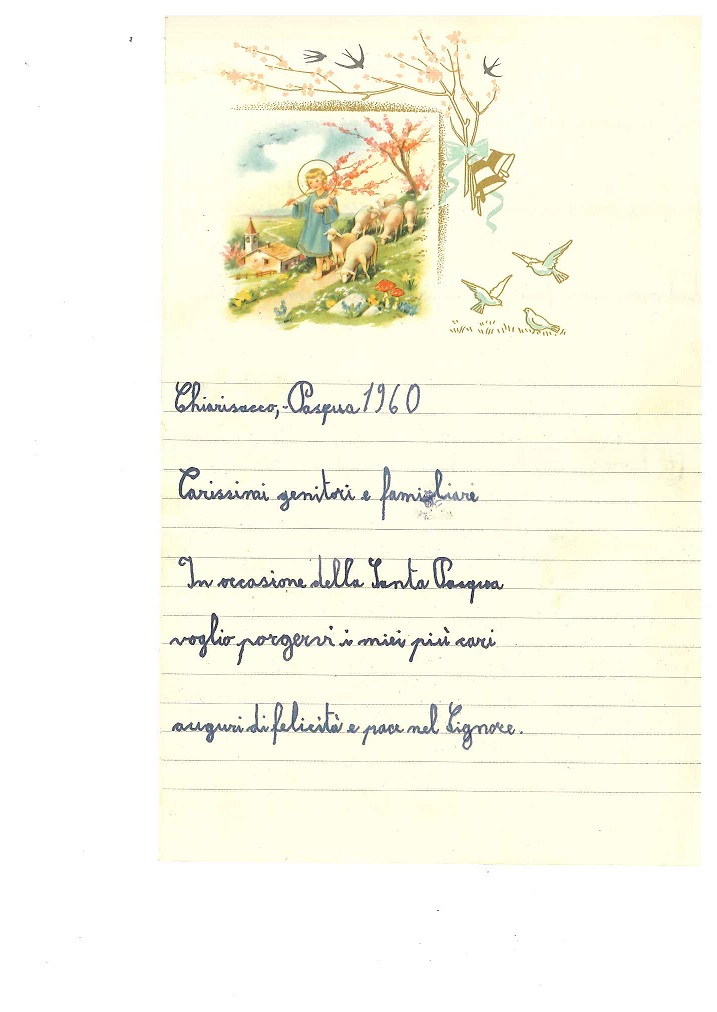 Chiarisacco,-Pasqua 1960
Carissimi genitori e famigliari
In occasione della Santa Pasqua
voglio porgervi i miei più cari
auguri di felicità e pace nel Signore.